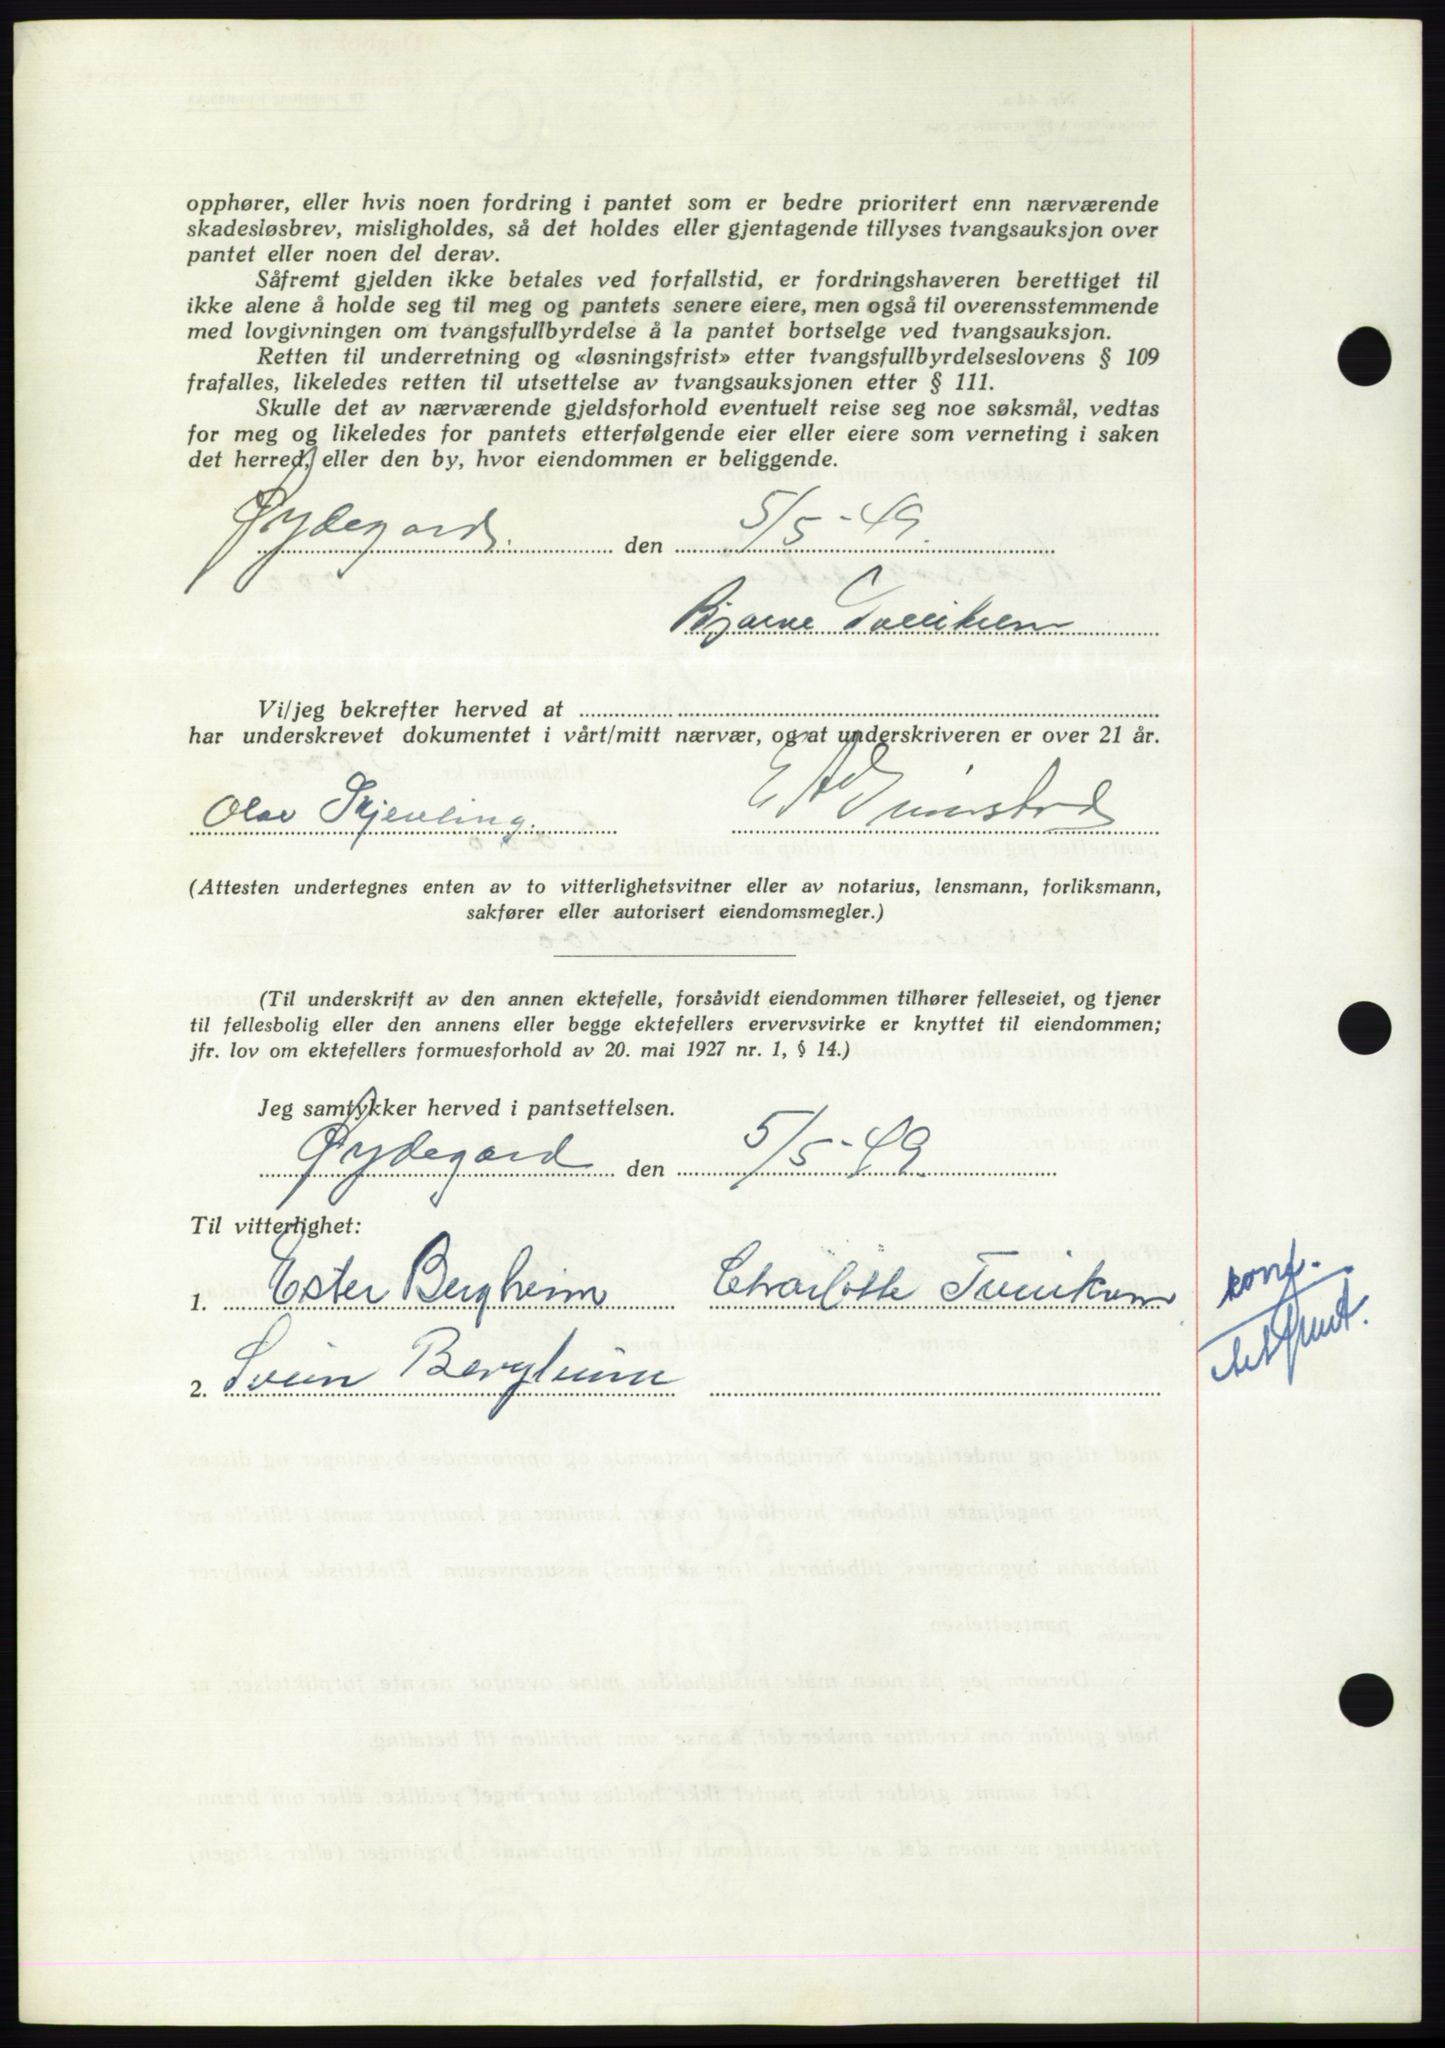 opphører, eller hvis noen fordring i pantet som er bedre prioritert enn nærværende
skadesløsbrev, misligholdes, så det holdes eller gjentagende tillyses tvangsauksjon over
pantet eller noen del derav.
Såfremt gjelden ikke betales ved forfallstid, er fordringshaveren berettiget til
ikke alene å holde seg til meg og pantets senere eiere, men også til overensstemmende
med lovgivningen om tvangsfullbyrdelse å la pantet bortselge ved tvangsauksjon.
Retten til underretning og «løsningsfrist» etter tvangsfullbyrdelseslovens § 109
frafalles, likeledes retten til utsettelse av tvangsauksjonen etter § 111.
Skulle det av nærværende gjeldsforhold eventuelt reise seg noe søksmål, vedtas
for meg og likeledes for pantets etterfølgende eier eller eiere som verneting i saken
det herred, eller den by, hvor eiendommen er beliggende.
Øydegard den 5/5-49.
Bjarne
Vi/jeg bekrefter herved at
har underskrevet dokumentet i vårt/mitt nærvær, og at underskriveren er over 21 år.
Olav Skjevling.
(Attesten undertegnes enten av to vitterlighetsvitner eller av notarius, lensmann, forliksmann,
sakfører eller autorisert eiendomsmegler.)
(Til underskrift av den annen ektefelle, forsåvidt eiendommen tilhører felleseiet, og tjener
til fellesbolig eller den annens eller begge ektefellers ervervsvirke er knyttet til eiendommen;
jfr. lov om ektefellers formuesforhold av 20. mai 1927 nr. 1, § 14.)
Jeg samtykker herved i pantsettelsen.
Øydegard den 5/5-49.
Til vitterlighet:
1. Ester Bergheim Charlotte
2. Svein Bergheim
konf.